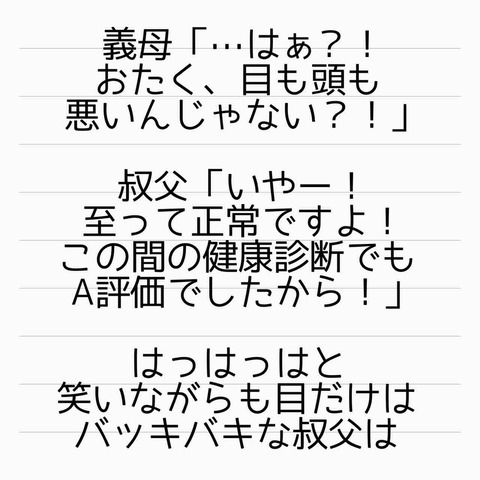 義母「…はぁ？！
おたく、目も頭も
悪いんじゃない？！」
叔父「いやー！
至って正常ですよ！
この間の健康診断でも
A評価でしたから！」
はっはっはと
笑いながらも目だけは
バッキバキな叔父は